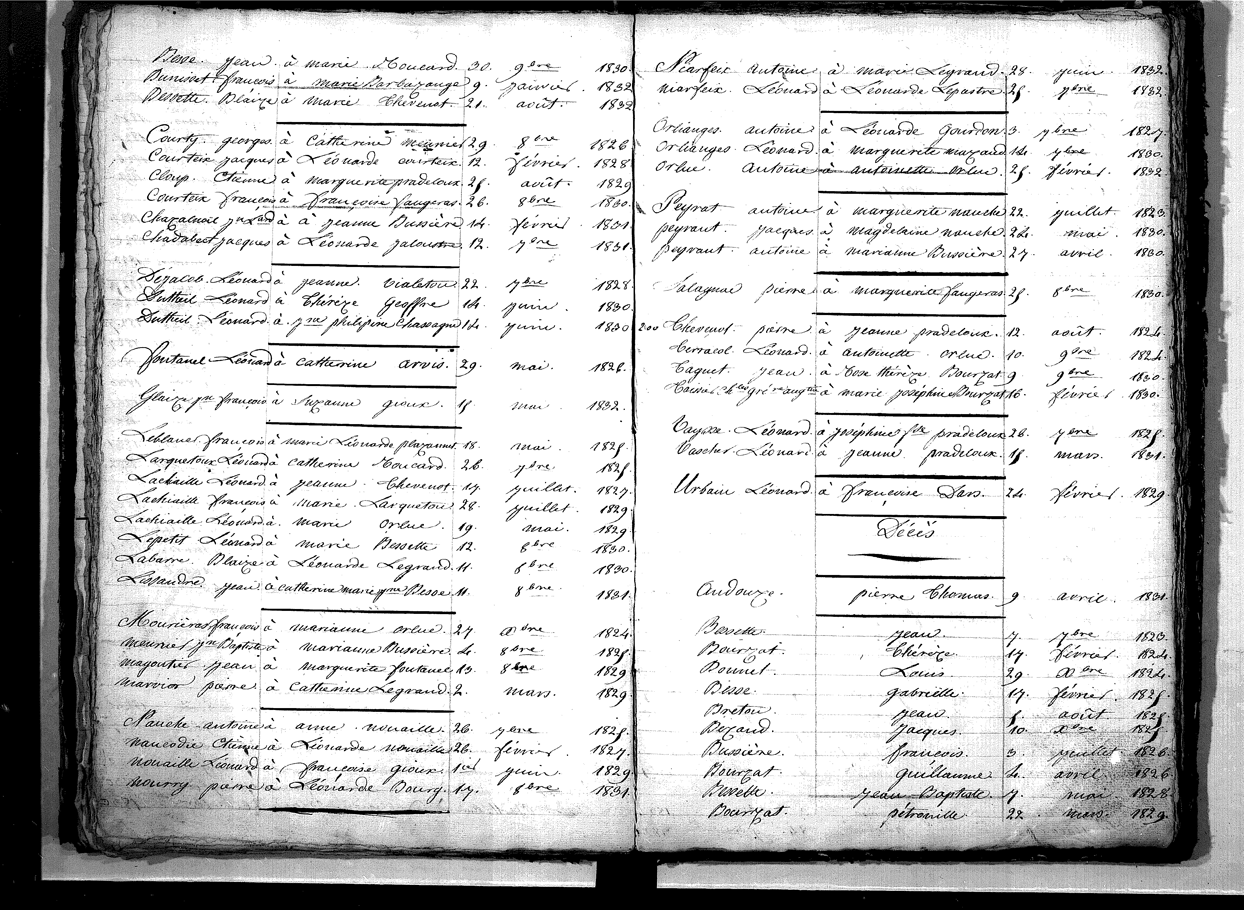 Besse Jean à marie Moucard 30. 9bre 1830.
Bunisset françois à marie Barbazange 9. janvier 1832
Bessette Blaize à marie Chevenot 21. août 1832
Courty georges à Catherine meunier 29. 8bre 1826
Courteix jacques à Léonarde courteix 12. février 1828
Cloup Etienne à marguerite pradeloux 25. août. 1829
Courteix françois à françoise faugeras 26. 8bre 1830.
Chazalnoil jn Lard à à jeanne Bussière 14. février 1831.
Chadabert jacques à Léonarde jaloustre 12. 7bre 1831.
Dezalob Léonard à jeanne Vialetou 22. 7bre 1828.
Dutteil Léonard à Thérèze Geoffre 14. juin. 1830.
Dutteil Léonard à jne philipine Chassagne 14. juin. 1830
fontanel Léonard à catherine arvis. 29. mai. 1826.
Glaize jn françois à Suzanne gioux. 15 mai. 1832.
Leblanc françois à marie Léonarde plazannet 18. mai 1825.
Larquetoux Léonard à catherine Moucard. 26. 7bre 1825.
Lachaille Léonard à jeanne Chevenot. 17 juillet. 1827.
Lachiaille françois à marie Larquetou 28. juillet. 1829.
Lachiaille Léonard à marie orlue. 19. mai. 1829
Lepetit Léonard à marie Bessette 12. 8bre 1830.
Labarre Blaize à Léonarde Legrand. 11. 8bre 1830.
Lissandre jean à catherine marie jne Besse 11. 8bre 1831.
Mouriéras françois à marianne orlue. 27 Xbre 1824.
meunier jn Baptiste à marianne Bussière 4. 8bre 1825.
magoutier jean à marguerite fontanel 13. 8bre 1829.
marvier pierre à Catherine Legrand 2. mars. 1829.
Nauche antoine à anne nouaille. 26. 7bre 1825.
naucodie Etienne à Léonarde nouaille 26. février. 1827.
nouaille Léonard à françoise gioux. 1er juin 1829.
nourry pierre à Léonarde Bourg. 17. 8bre 1831.
Narfeix antoine à marie Legrand. 28. juin 1832.
narfeix Léonard à Léonarde Lepastre 25. 7bre 1832.
Orlianges antoine à Léonarde Gourdon. 3. 7bre 1827.
Orlianges Léonard à marguerite mazaud 14. 7bre 1830.
Orlue Antoine à antoinette orlue. 25. février. 1832.
Peyrat antoine à marguerite nauche 22. juillet 1823
peyraut jacques à magdelaine nauche 24. mai. 1830.
peyraut antoine à marianne Bussière 27. avril. 1830.
Salagnac pierre à marguerite faugeras 25. 8bre 1830.
200 Chevenot. pierre à jeanne pradeloux. 12. août 1824.
Terracol Léonard à antoinette orlue. 10. 9bre 1824.
Taguet jean à Rose Thérèze Bourzat 9 9bre 1830.
à marie joséphine Bourzat 16. février 1830.
Vaysse Léonard à joséphine pradeloux 26. 7bre 1825.
Vascher Léonard à jeanne pradeloux. 15 mars. 1831.
Urbain Léonard à françoise Dars. 24. février. 1829
Décès
Andouze. pierre Thomas. 9. avril. 1831.
Bessette. jean. 7. 7bre 1823.
Bourzat. Thérèze. 17. février. 1824.
Bonnet. Louis. 29. Xbre 1824.
Besse. gabrielle. 17. février. 1825.
Bretou. jean. 5. août. 1825.
Bezaud. jacques. 10. Xbre 1825
Bussière. françois. 3. juillet. 1826.
Bourzat. guillaume. 4. avril. 1826.
Bessette. jean Baptiste. 7. mai. 1828.
Bourzat. pétronille 22. mars. 1829.